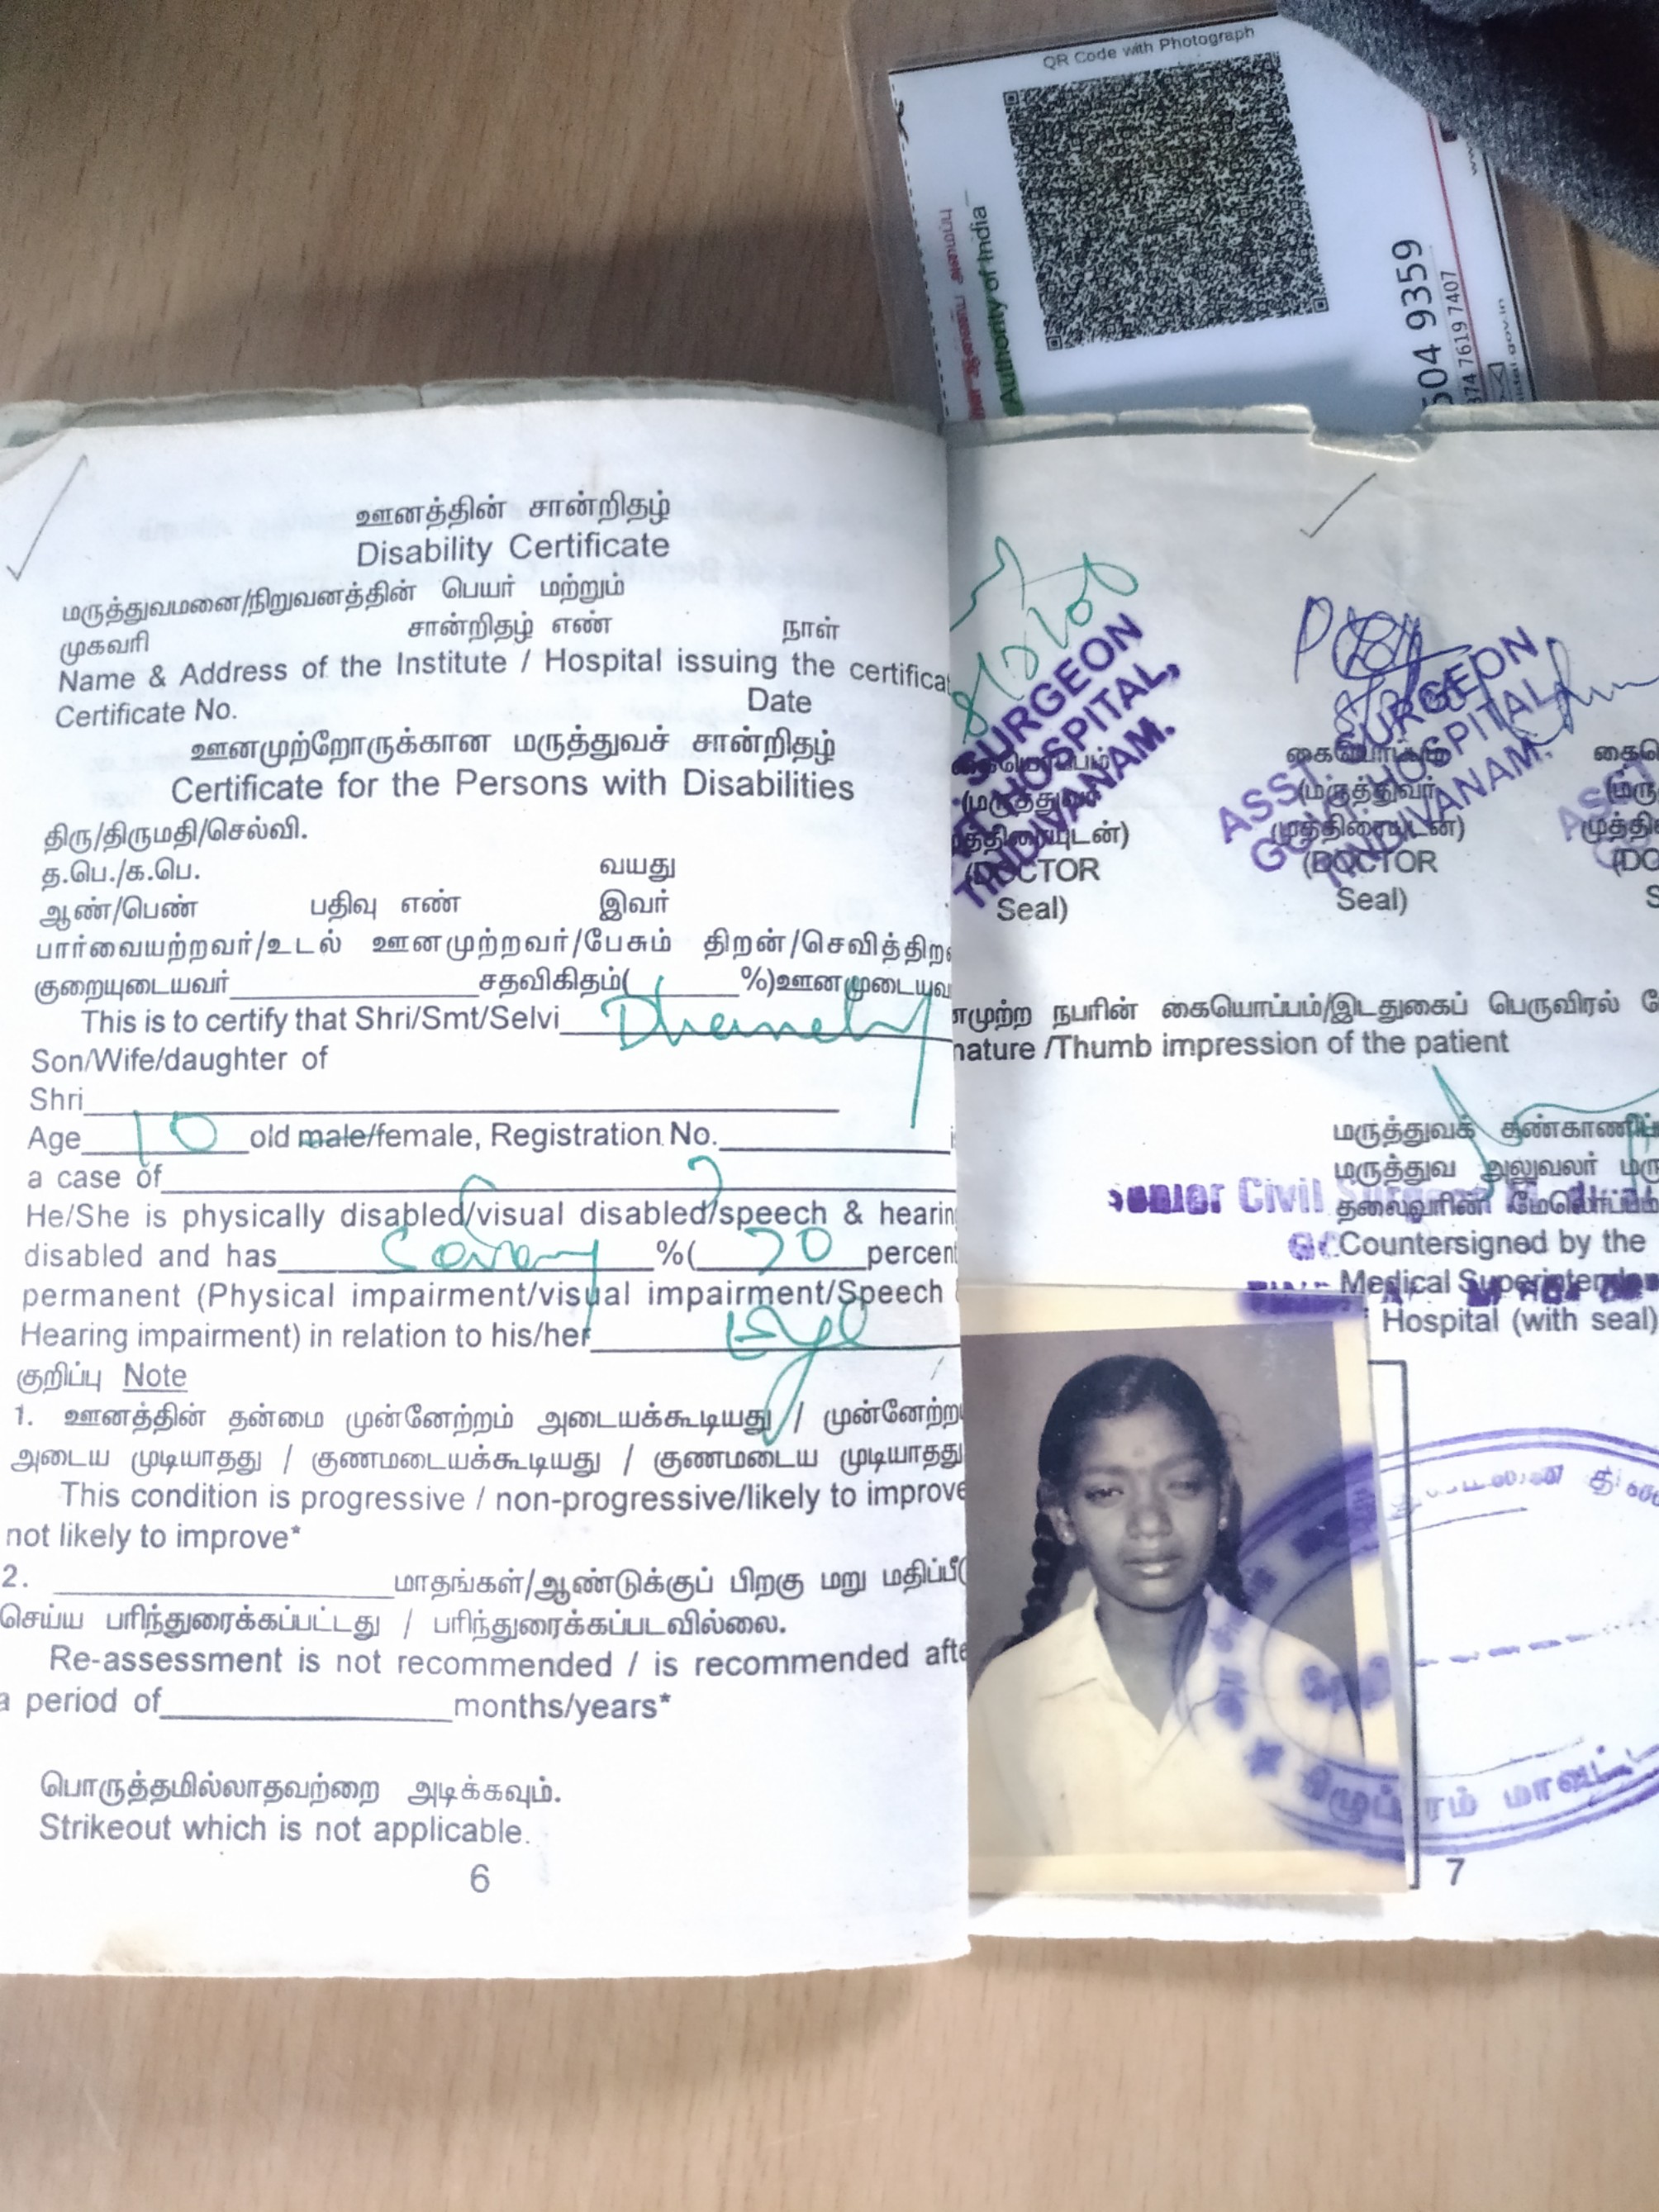 QR Code with Photograph
Authority of India
504 9359
374 7619 7407
ஊனத்தின் சான்றிதழ்
Disability Certificate
மருத்துவமனை/நிறுவனத்தின் பெயர் மற்றும்
முகவரி சான்றிதழ் எண் நாள்
Name & Address of the Institute / Hospital issuing the
Certificate No. Date
ஊனமுற்றோருக்கான மருத்துவச் சான்றிதழ்
Certificate for the Persons with Disabilities
திரு/திருமதி/செல்வி.
த.பெ./க.பெ. வயது
ஆண்/பெண் பதிவு எண் இவர்
பார்வையற்றவர்/உடல் ஊனமுற்றவர்/பேசும் திறன்/
குறையுடையவர் சதவிகிதம்( %)
This is to certify that Shri/Smt/Selvi
Son/Wife/daughter of
Shri
Age 10 old male/female, Registration No.
a case of
He/She is physically disabled/visual disabled/speech & hearin
disabled and has % ( 70 percent
permanent (Physical impairment/visual impairment/Speech
Hearing impairment) in relation to his/her Eye
குறிப்பு Note
1. ஊனத்தின் தன்மை முன்னேற்றம் அடையக்கூடியது / முன்னேற்ற
அடைய முடியாதது / குணமடையக்கூடியது / குணமடைய முடியாதது
This condition is progressive / non-progressive/likely to improve
not likely to improve*
2. மாதங்கள்/ஆண்டுக்குப் பிறகு மறு
செய்ய பரிந்துரைக்கப்பட்டது / பரிந்துரைக்கப்படவில்லை.
Re-assessment is not recommended / is recommended afte
a period of months/years*
பொருத்தமில்லாதவற்றை அடிக்கவும்.
Strikeout which is not applicable.
6
SURGEON
HOSPITAL,
TINDIVANAM.
(DOCTOR
Seal)
ASST. SURGEON
GOVT. HOSPITAL
TINDIVANAM.
(DOCTOR
Seal)
நபரின் கையொப்பம்/இடதுகைப் பெருவிரல்
nature /Thumb impression of the patient
மருத்துவக்
மருத்துவ அலுவலர்
Senior Civil Surgeon
Countersigned by the
Medical Superintenden
Hospital (with seal)
7